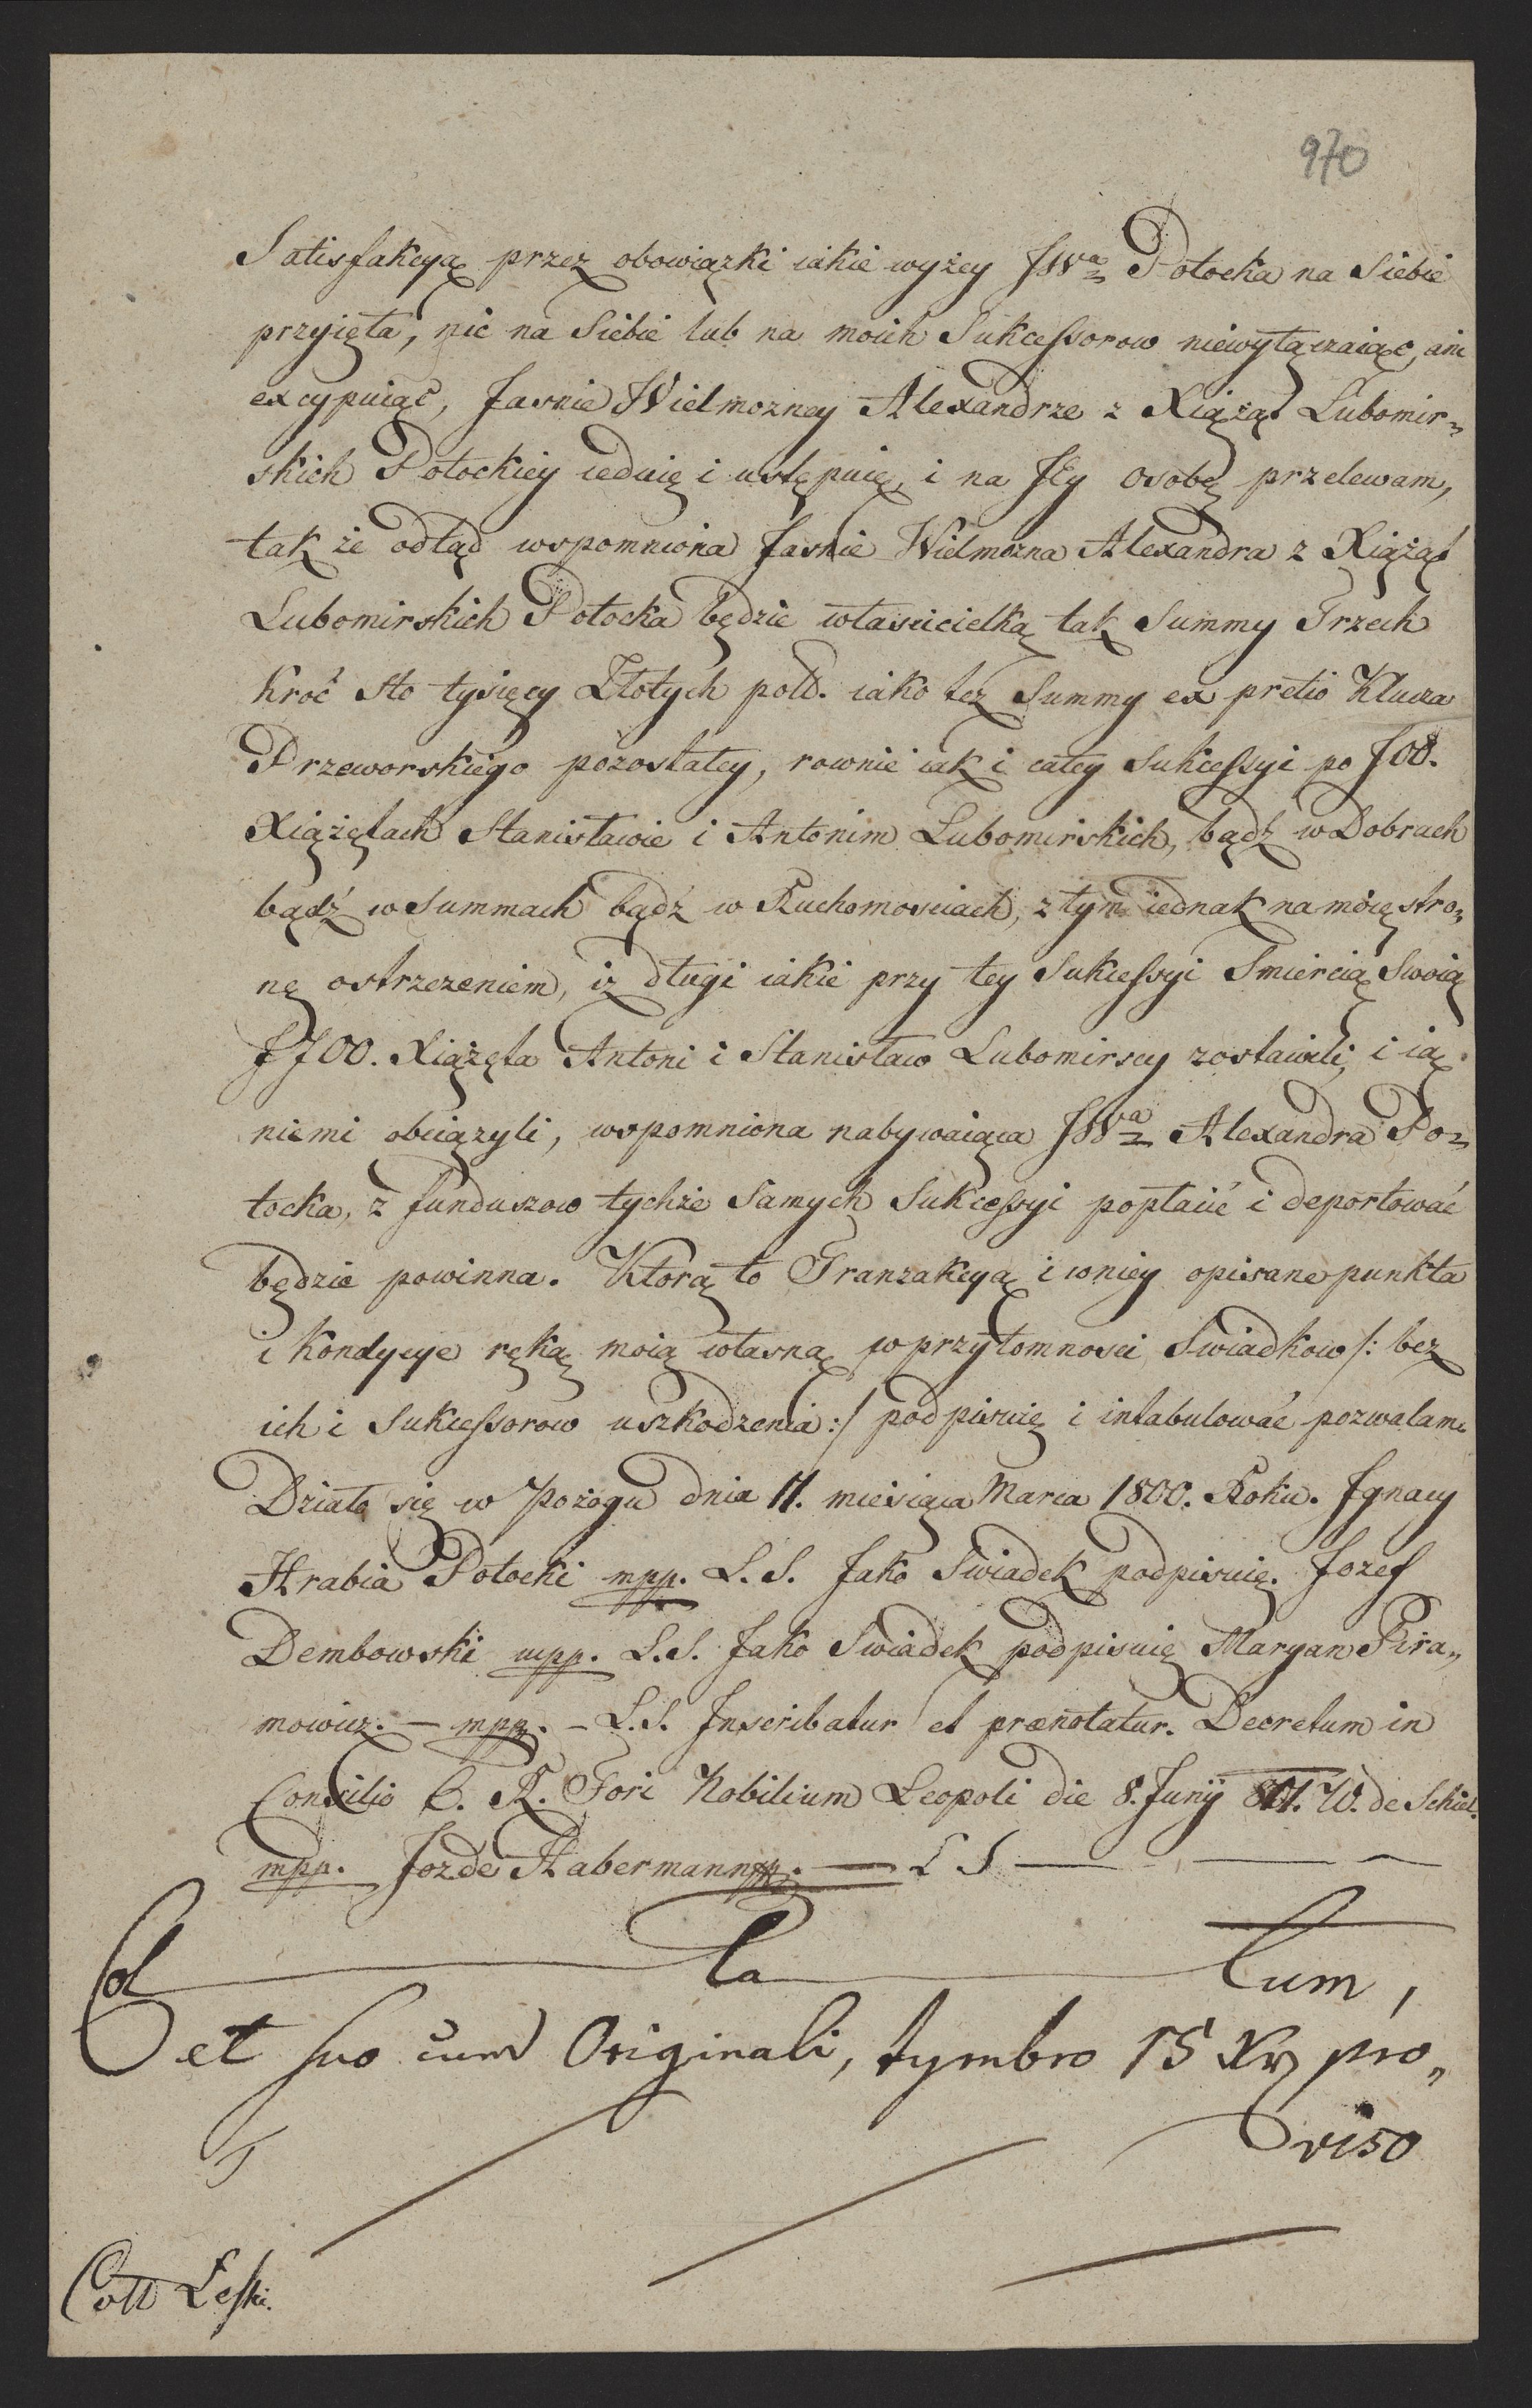 970
Satisfakcyą przez obowiązki iakie wyżey JWa Potocka na Siebie
przyięła, nic na Siebie lub na moich Sukcessorow niewyłączaiąc, ani
excypuiąc, Jasnie Wielmozney Alexandrze z Xiążąt Lubomir„
skich Potockiey ceduię i ustępuię, i na JEy osobę przelewam,
tak że odtąd wspomniona Jasnie Wielmozna Alexandra z Xiążąt
Lubomirskich Potocka będzie włascicielką tak Summy Trzech
kroć sto tysięcy Złotych pold. iako też Summy ex pretio Klucza
Przeworskiego pozostałey, rownie iak i całey Sukcessyi po JOO.
Xiążętach Stanisławie i Antonim Lubomirskich, bądź w Dobrach
bądź w Summach bądź w Ruchomosciach, z tym iednak na moię stro„
nę ostrzezeniem, iż długi iakie przy tey Sukcessyi Smiercią Swoią
JJOO. Xiążęta Antoni i Stanisław Lubomirscy zostawili, i ią
niemi obciązyli, wspomniona nabywaiąca JWa Alexandra Po„
tocka, z funduszow tychże Samych Sukcessyi popłacić i deportować
będzie powinna. Ktorą to Tranzakcyą i w niey opisane punkta
i Kondycye ręką moią własną w przytomnosci Swiadkow /: bez
ich i Sukcessorow uszkodzenia :/ podpisuię i intabulować pozwalam.
Działo się w Pożogu dnia 11. miesiąca Marca 1800. Roku. Ignacy
Hrabia Potocki mpp. L.S. Jako Swiadek podpisuię. Jozef
Dembowski mpp. L.S. Jako Swiadek podpisuię Maryan Pira„
mowicz. — mpp. — L.S. Inscribatur et prænotatur. Decretum in
Consilio C. R. Fori Nobilium Leopoli die 8. Junij 801. W. de
mpp. Joz de Habermann mpp. — L S —
Col la tum,
et suo cum Originali, tymbro 15 Xr pro„
viso
Coll Leski.